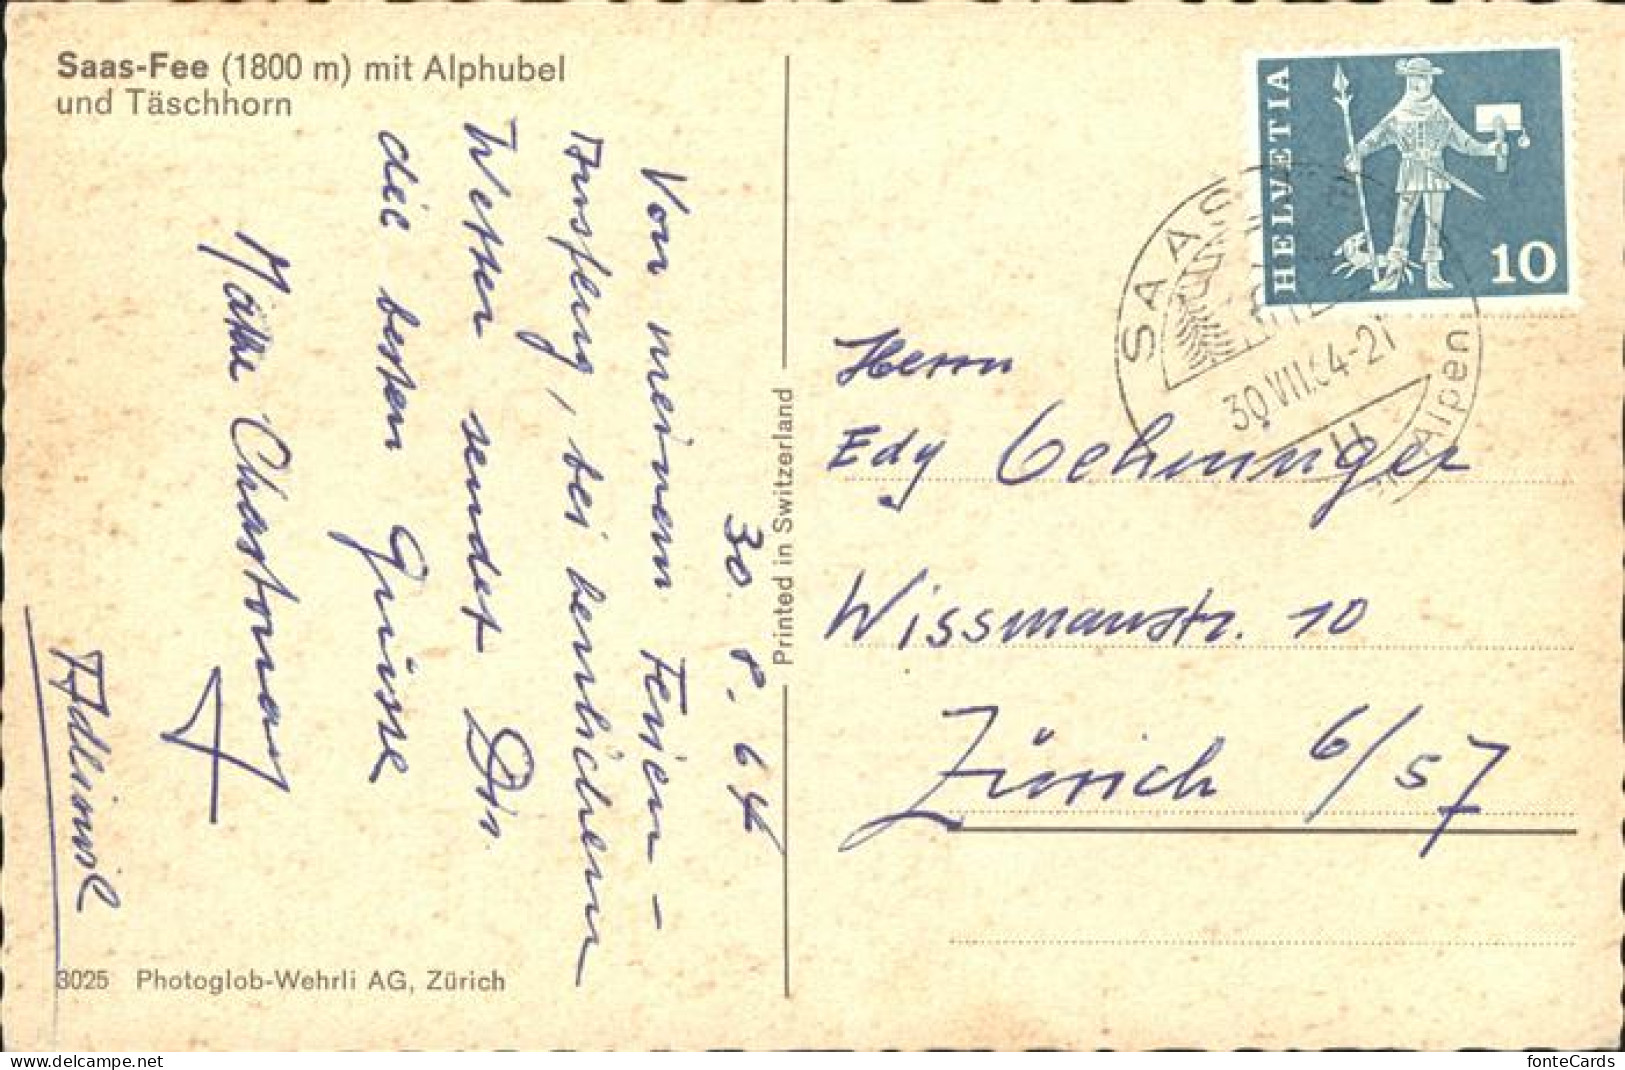 Saas-Fee (1800 m) mit Alphubel
und Täschhorn
30. 8. 64
Von meinem Ferien-
Ausflug, bei herrlichem
Wetter sendet Dir
die besten Grüsse
Chastonay
3025 Photoglob-Wehrli AG, Zürich
Printed in Switzerland
HELVETIA
10
SAAS
30.VII.64-21
Alpen
Herrn
Edy Oehninger
Wissmannstr. 10
Zürich 6/57
www.delcampe.net
fonteCards